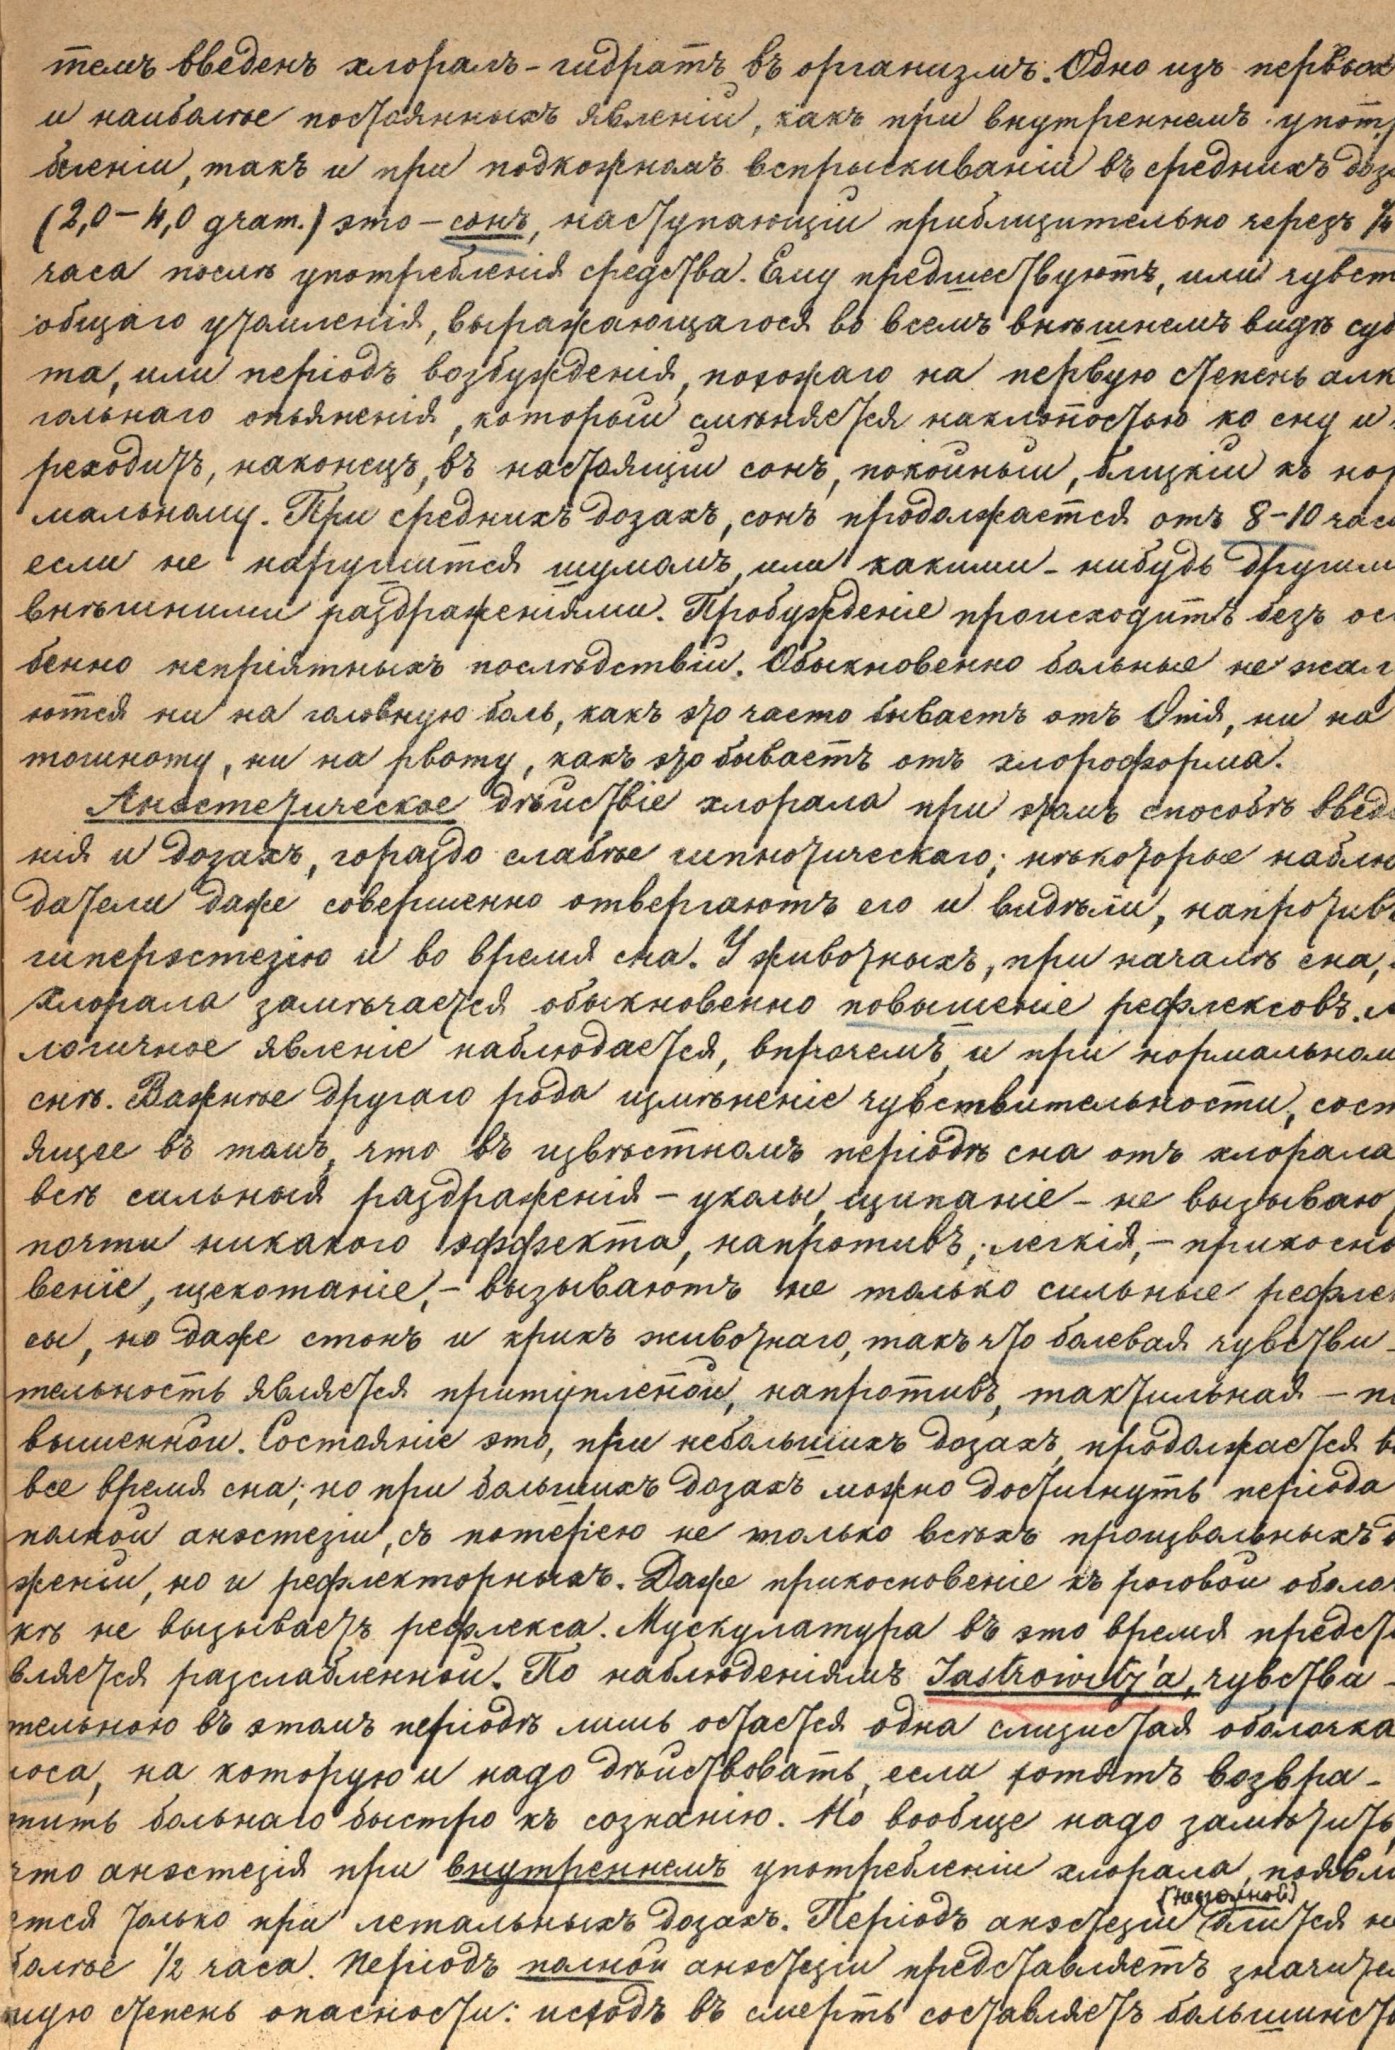 темъ введенъ хлоралъ-гидратъ въ организмъ. Одно изъ первых
и наиболѣе постоянныхъ явленій, какъ при внутреннемъ упот
бленіи, такъ и при подкожномъ вспрыскиваніи въ среднихъ доз
(2,0–4,0 gram.) это – сонъ, наступающій приблизительно черезъ ½
часа послѣ употребленія средства. Ему предшествуютъ, или чувст
общаго утомленія, выражающагося во всемъ внѣшнемъ видѣ суб
та, или періодъ возбужденія, похожаго на первую степень алк
гольнаго опьяненія, который смѣняется наклонностью ко сну и
реходитъ, наконецъ, въ настоящій сонъ, покойный, близкій къ нор
мальному. При среднихъ дозахъ, сонъ продолжается отъ 8–10 час
если не нарушится шумомъ, или какими-нибудь другим
внѣшними раздраженіями. Пробужденіе происходитъ безъ ос
бенно непріятныхъ послѣдствій. Обыкновенно больные не жал
ются ни на головную боль, какъ это часто бываетъ отъ Опія, ни на
тошноту, ни на рвоту, какъ это бываетъ отъ хлороформа.
Анэстетическое дѣйствіе хлорала при этомъ способѣ введ
нія и дозахъ, гораздо слабѣе гипнотическаго; нѣкоторые наблю
датели даже совершенно отвергаютъ его и видѣли, напротивъ
гиперэстезію и во время сна. У животныхъ, при началѣ сна,
хлорала замѣчается обыкновенно повышеніе рефлексовъ.
логичное явленіе наблюдается, впрочемъ, и при нормальном
снѣ. Важнѣе другаго рода измѣненіе чувствительности, сост
ящее въ томъ, что въ извѣстномъ періодѣ сна отъ хлорала
всѣ сильныя раздраженія – уколы, щипаніе – не вызываю
почти никакого эффекта, напротивъ, легкія, – прикосно
веніе, щекотаніе, – вызываютъ не только сильные рефле
сы, но даже стонъ и крикъ животнаго, такъ что болевая чувстви-
тельность является притупленной, напротивъ, тактильная – по
вышенной. Состояніе это, при небольшихъ дозахъ, продолжается в
все время сна; но при большихъ дозахъ можно достигнуть періода
полной анэстезіи, съ потерею не только всѣхъ произвольныхъ д
женій, но и рефлекторныхъ. Даже прикосновеніе къ роговой оболоч
кѣ не вызываетъ рефлекса. Мускулатура въ это время предст
вляется разслабленной. По наблюденіямъ Jastrowitz'а, чувстви-
тельною въ этомъ періодѣ лишь остается одна слизистая оболочка
носа, на которую и надо дѣйствовать, если хотятъ возвра-
тить больнаго быстро къ сознанію. Но вообще надо замѣтить,
что анэстезія при внутреннемъ употребленіи хлорала, появля
ется только при летальныхъ дозахъ. Періодъ анэстезіи (неполной) длится не
болѣе ½ часа. Періодъ полной анэстезіи представляетъ значител
ную степень опасности: исходъ въ смерть составляетъ большинств